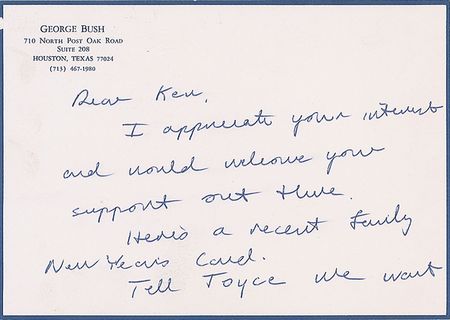 GEORGE BUSH
710 NORTH POST OAK ROAD
SUITE 208
HOUSTON, TEXAS 77024
(713) 467-1980
Dear Ken,
I appreciate your interest
and would welcome your
support out there.
Here's a recent Family
New Years Card.
Tell Joyce we want